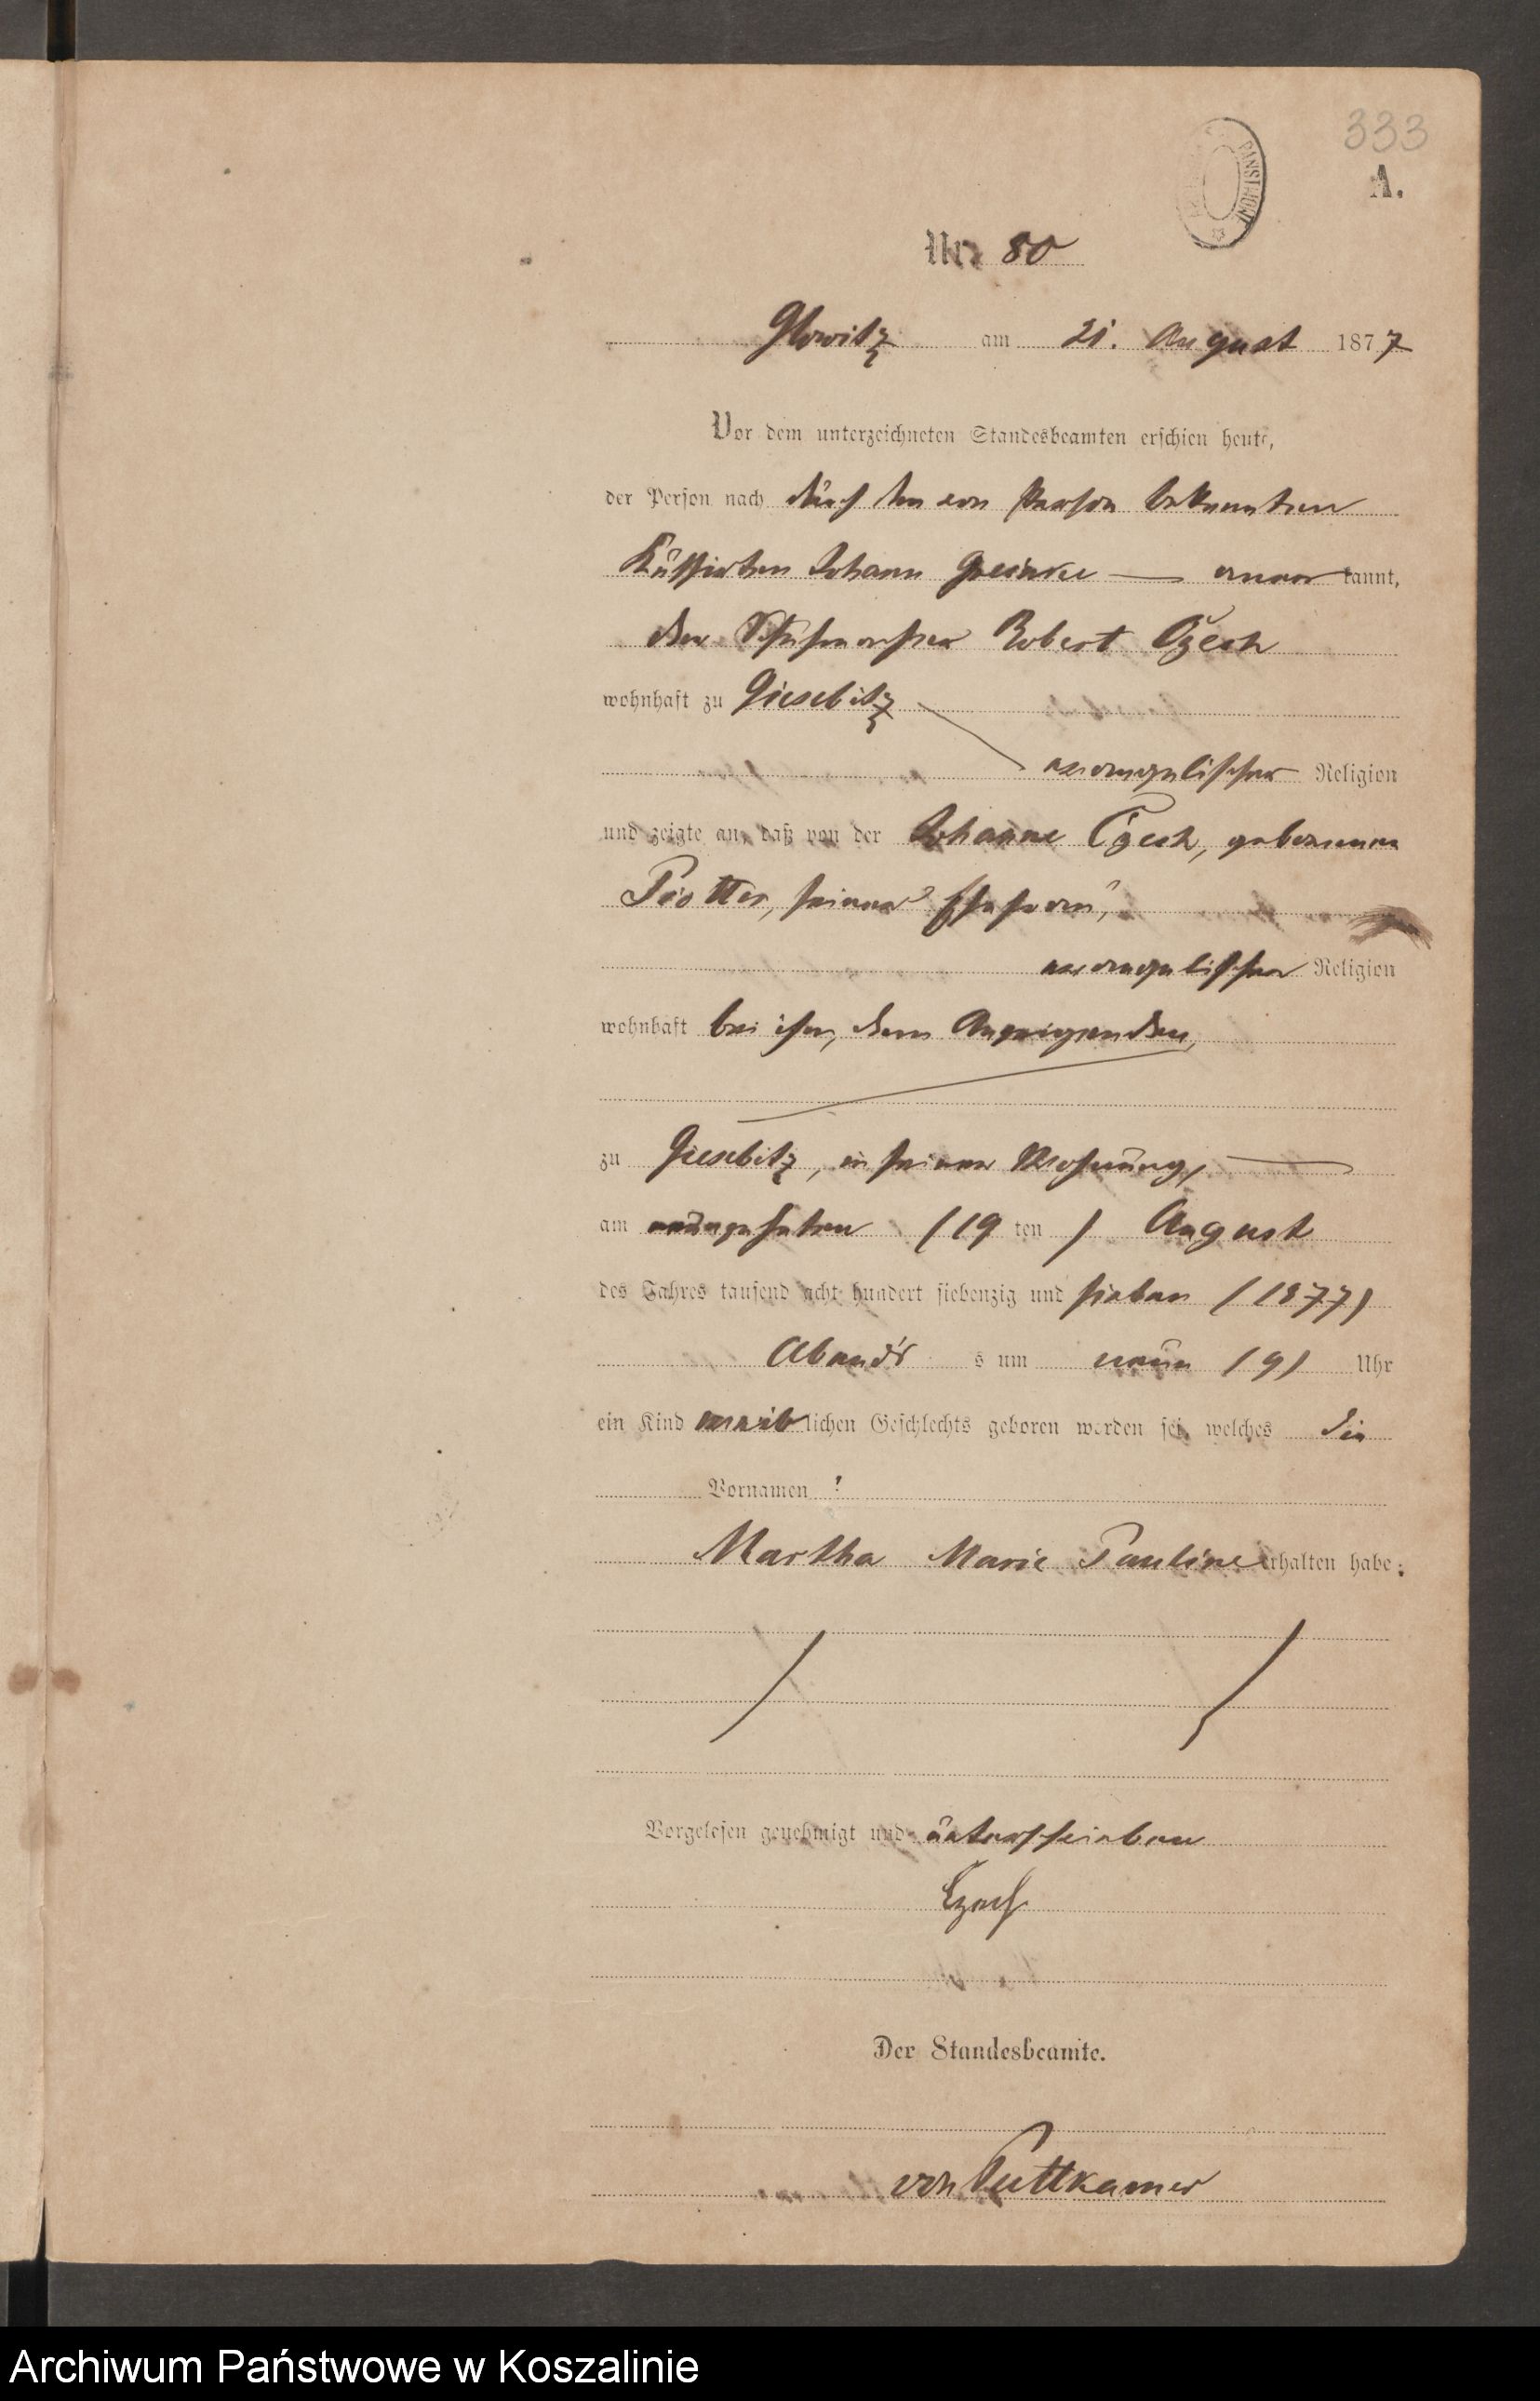 333
A.
PAŃSTWOWE
Nr. 80
Glowitz am 21. August 1877
Vor dem unterzeichneten Standesbeamten erschien heute,
der Person nach durch den von Person bekannten
Johann anerkannt,
der Robert Czech
wohnhaft zu Giesebitz
evangelischer Religion
und zeigte an, daß von der Johanne Czech, geborenen
Piotter, seiner Ehefrau,
evangelischer Religion
wohnhaft bei ihm, dem Anzeigenden,
zu Giesebitz, in seiner Wohnung,
am neunzehnten (19 ten) August
des Jahres tausend acht hundert siebenzig und sieben (1877)
Abends um neun (9) Uhr
ein Kind weiblichen Geschlechts geboren worden sei, welches die
Vornamen :
Martha Marie Pauline erhalten habe.
Vorgelesen genehmigt und unterschrieben
Czech
Der Standesbeamte.
von Puttkamer
Archiwum Państwowe w Koszalinie